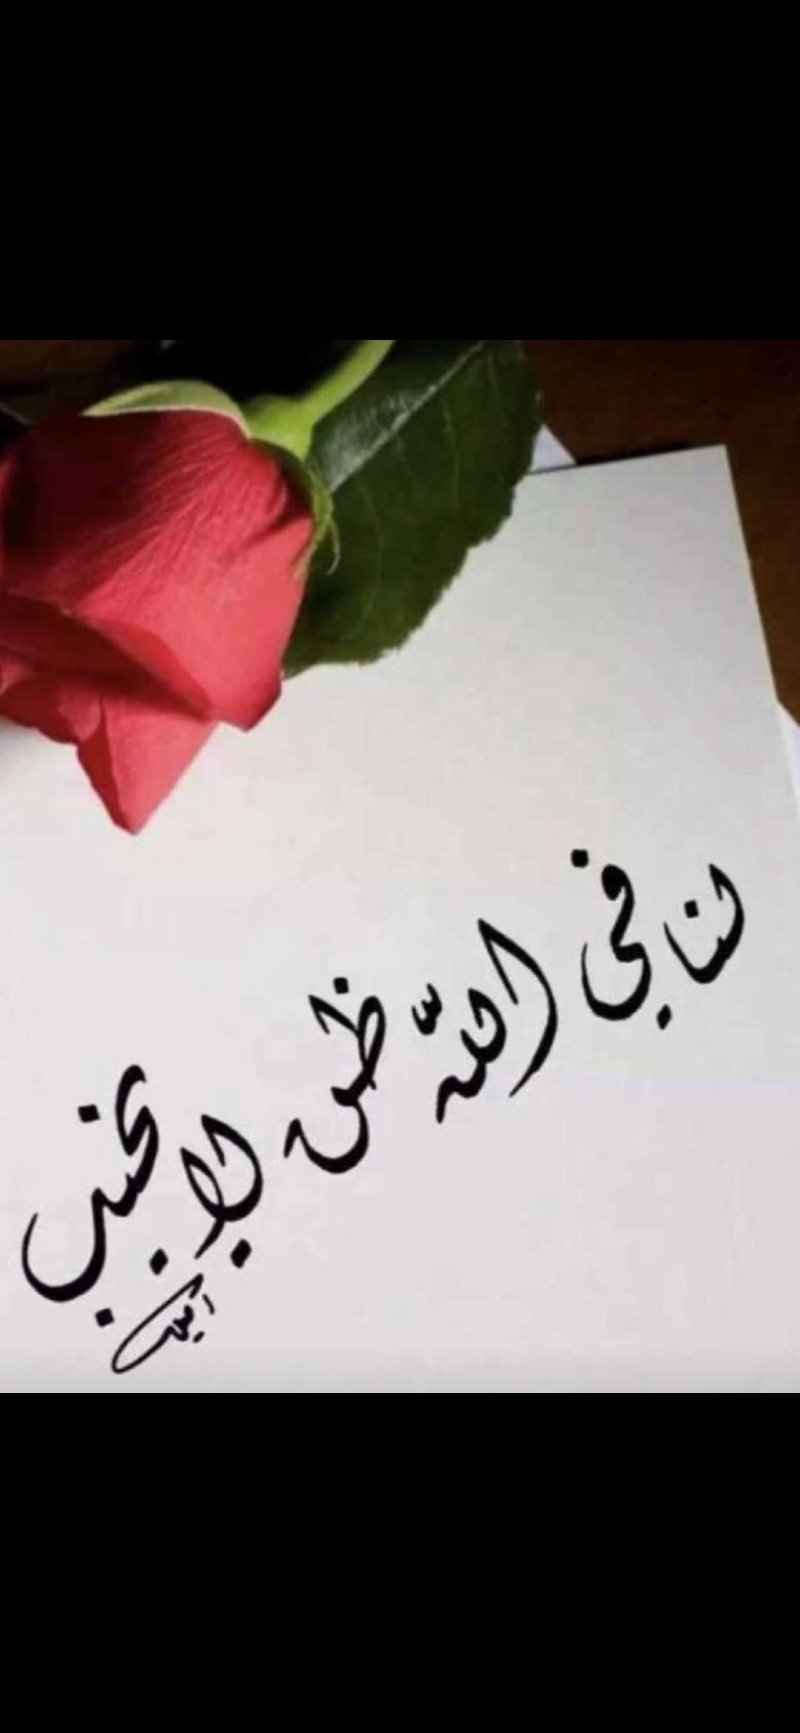 لنا في اللّه ظن لا يخيب